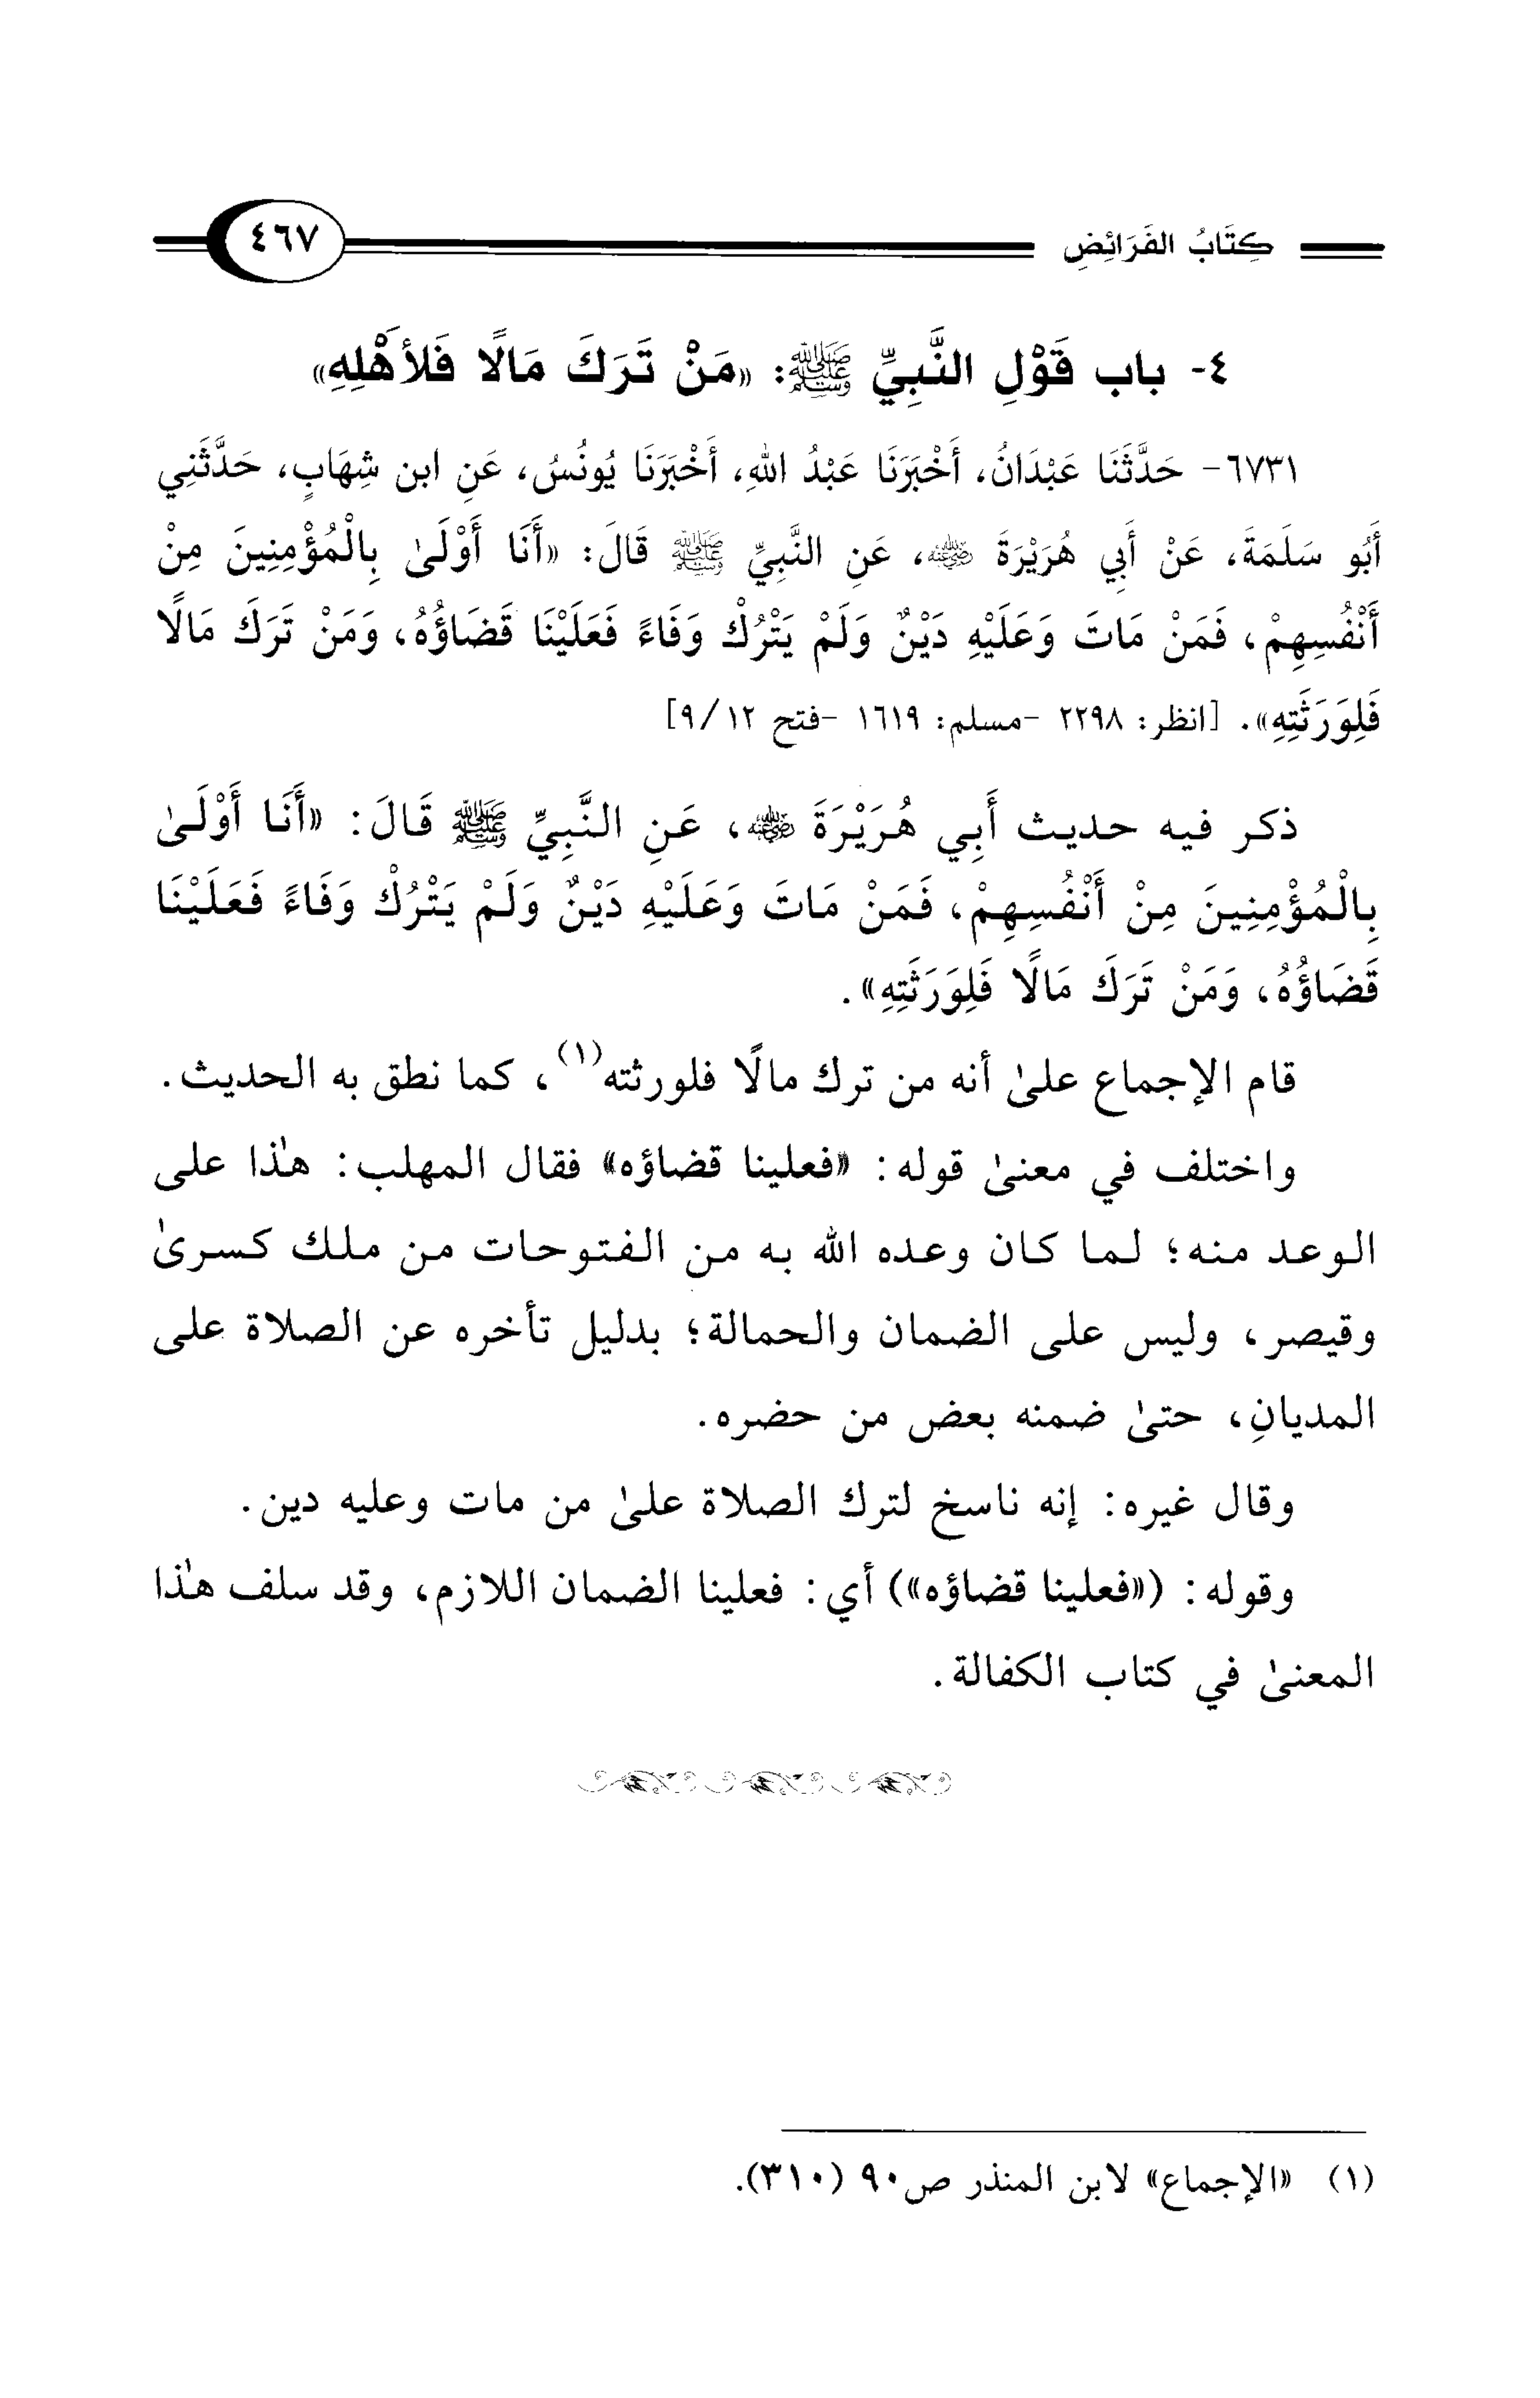 كِتَابُ الفَرَائِضِ ٤٦٧
٤- باب قَوْلِ النَّبِيِّ ﷺ: «مَنْ تَرَكَ مَالًا فَلأَهْلِهِ»
٦٧٣١- حَدَّثَنَا عَبْدَانُ، أَخْبَرَنَا عَبْدُ اللهِ، أَخْبَرَنَا يُونُسُ، عَنِ ابن شِهَابٍ، حَدَّثَنِي
أَبُو سَلَمَةَ، عَنْ أَبِي هُرَيْرَةَ رضي الله عنه، عَنِ النَّبِيِّ ﷺ قَالَ: «أَنَا أَوْلَىٰ بِالْمُؤْمِنِينَ مِنْ
أَنْفُسِهِمْ، فَمَنْ مَاتَ وَعَلَيْهِ دَيْنٌ وَلَمْ يَتْرُكْ وَفَاءً فَعَلَيْنَا قَضَاؤُهُ، وَمَنْ تَرَكَ مَالًا
فَلِوَرَثَتِهِ». [انظر: ٢٢٩٨ -مسلم: ١٦١٩ -فتح ١٢/ ٩]
ذكر فيه حديث أَبِي هُرَيْرَةَ رضي الله عنه، عَنِ النَّبِيِّ ﷺ قَالَ: «أَنَا أَوْلَىٰ
بِالْمُؤْمِنِينَ مِنْ أَنْفُسِهِمْ، فَمَنْ مَاتَ وَعَلَيْهِ دَيْنٌ وَلَمْ يَتْرُكْ وَفَاءً فَعَلَيْنَا
قَضَاؤُهُ، وَمَنْ تَرَكَ مَالًا فَلِوَرَثَتِهِ».
قام الإجماع علىٰ أنه من ترك مالًا فلورثته(١)، كما نطق به الحديث.
واختلف في معنىٰ قوله: «فعلينا قضاؤه» فقال المهلب: هٰذا على
الوعد منه؛ لما كان وعده الله به من الفتوحات من ملك كسرىٰ
وقيصر، وليس على الضمان والحمالة؛ بدليل تأخره عن الصلاة على
المديانِ، حتىٰ ضمنه بعض من حضره.
وقال غيره: إنه ناسخ لترك الصلاة علىٰ من مات وعليه دين.
وقوله: («فعلينا قضاؤه») أي: فعلينا الضمان اللازم، وقد سلف هٰذا
المعنىٰ في كتاب الكفالة.
(١) «الإجماع» لابن المنذر ص٩٠ (٣١٠).